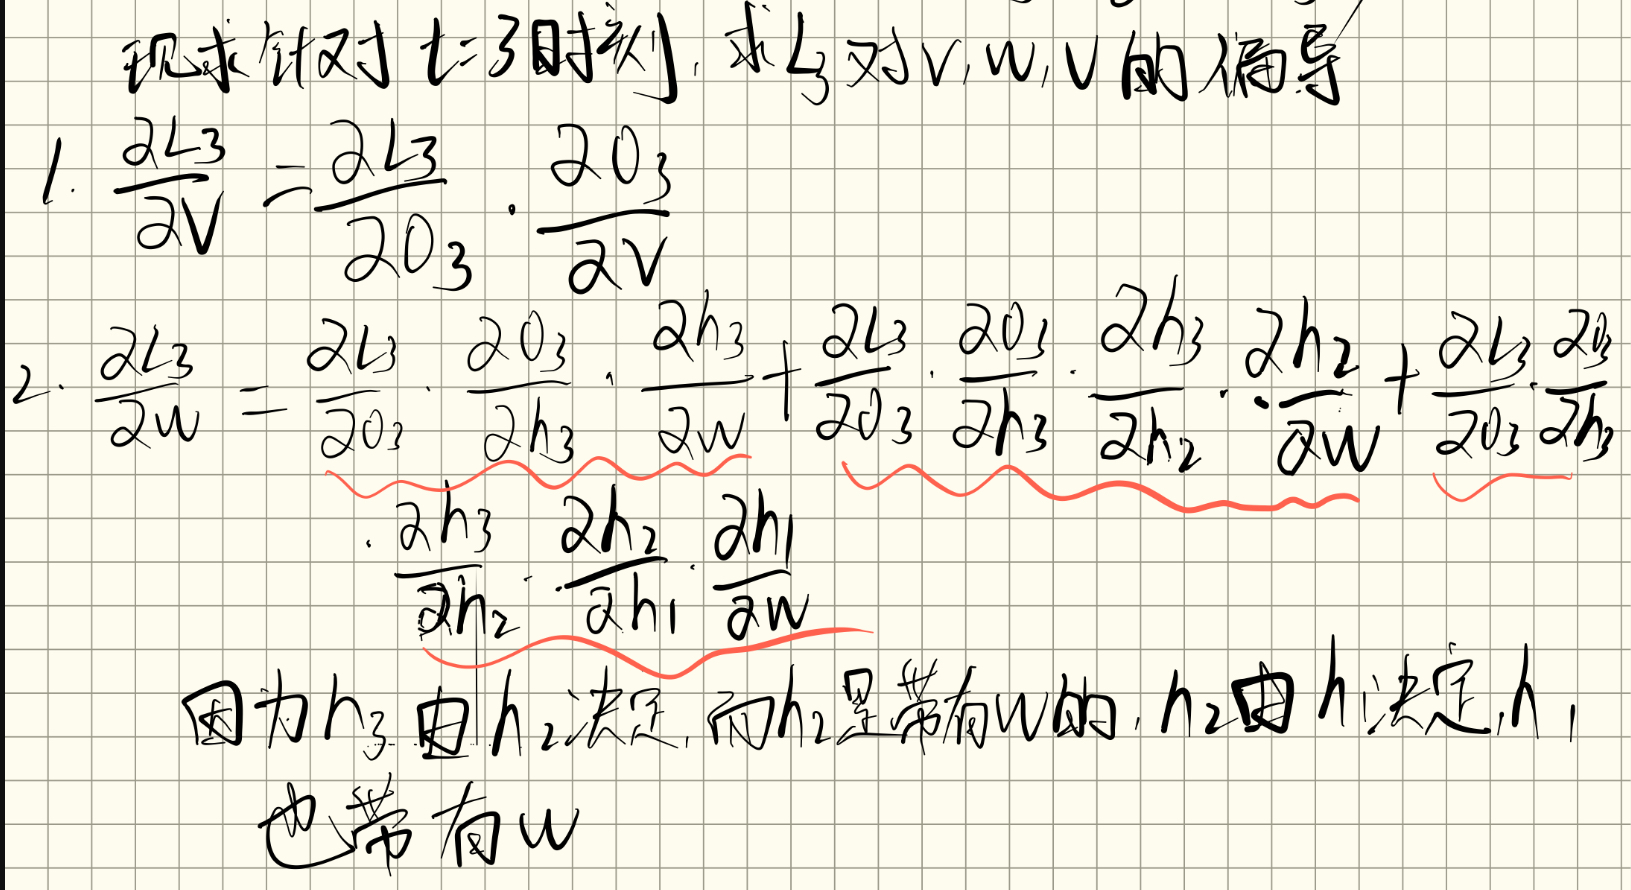 现求针对t=3时刻,求L₃对V,W,U的偏导
1. ∂L₃/∂V = ∂L₃/∂O₃ · ∂O₃/∂V
2. ∂L₃/∂W = ∂L₃/∂O₃ · ∂O₃/∂h₃ · ∂h₃/∂W + ∂L₃/∂O₃ · ∂O₃/∂h₃ · ∂h₃/∂h₂ · ∂h₂/∂W + ∂L₃/∂O₃ · ∂O₃/∂h₃
· ∂h₃/∂h₂ · ∂h₂/∂h₁ · ∂h₁/∂W
因为h₃由h₂决定,而h₂是带有W的,h₂由h₁决定,h₁
也带有W